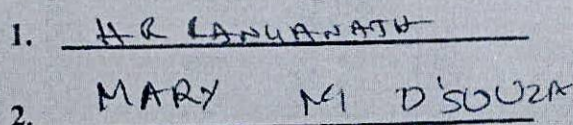 1. H R RANGANATH
2. MARY M D'SOUZA